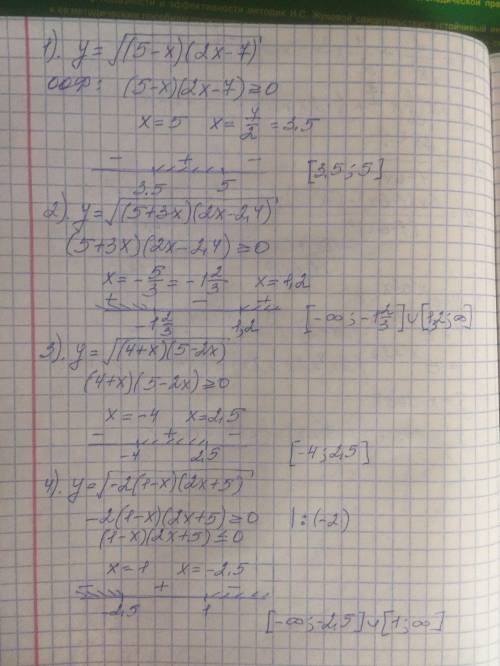 1). y = √(5-x)(2x-7)
ООФ: (5-x)(2x-7) ≥ 0
x = 5 x = 7/2 = 3,5
- + -
3.5 5 [3,5; 5]
2). y = √(5+3x)(2x-2,4)
(5+3x)(2x-2,4) ≥ 0
x = -5/3 = -1 2/3 x = 1,2
+ - +
-1 2/3 1,2 [-∞; -1 2/3] ∪ [1,2; ∞]
3). y = √(4+x)(5-2x)
(4+x)(5-2x) ≥ 0
x = -4 x = 2,5
- + -
-4 2,5 [-4; 2,5]
4). y = √-2(1-x)(2x+5)
-2(1-x)(2x+5) ≥ 0 | : (-2)
(1-x)(2x+5) ≤ 0
x = 1 x = -2,5
- + -
-2,5 1 [-∞; -2,5] ∪ [1; ∞]